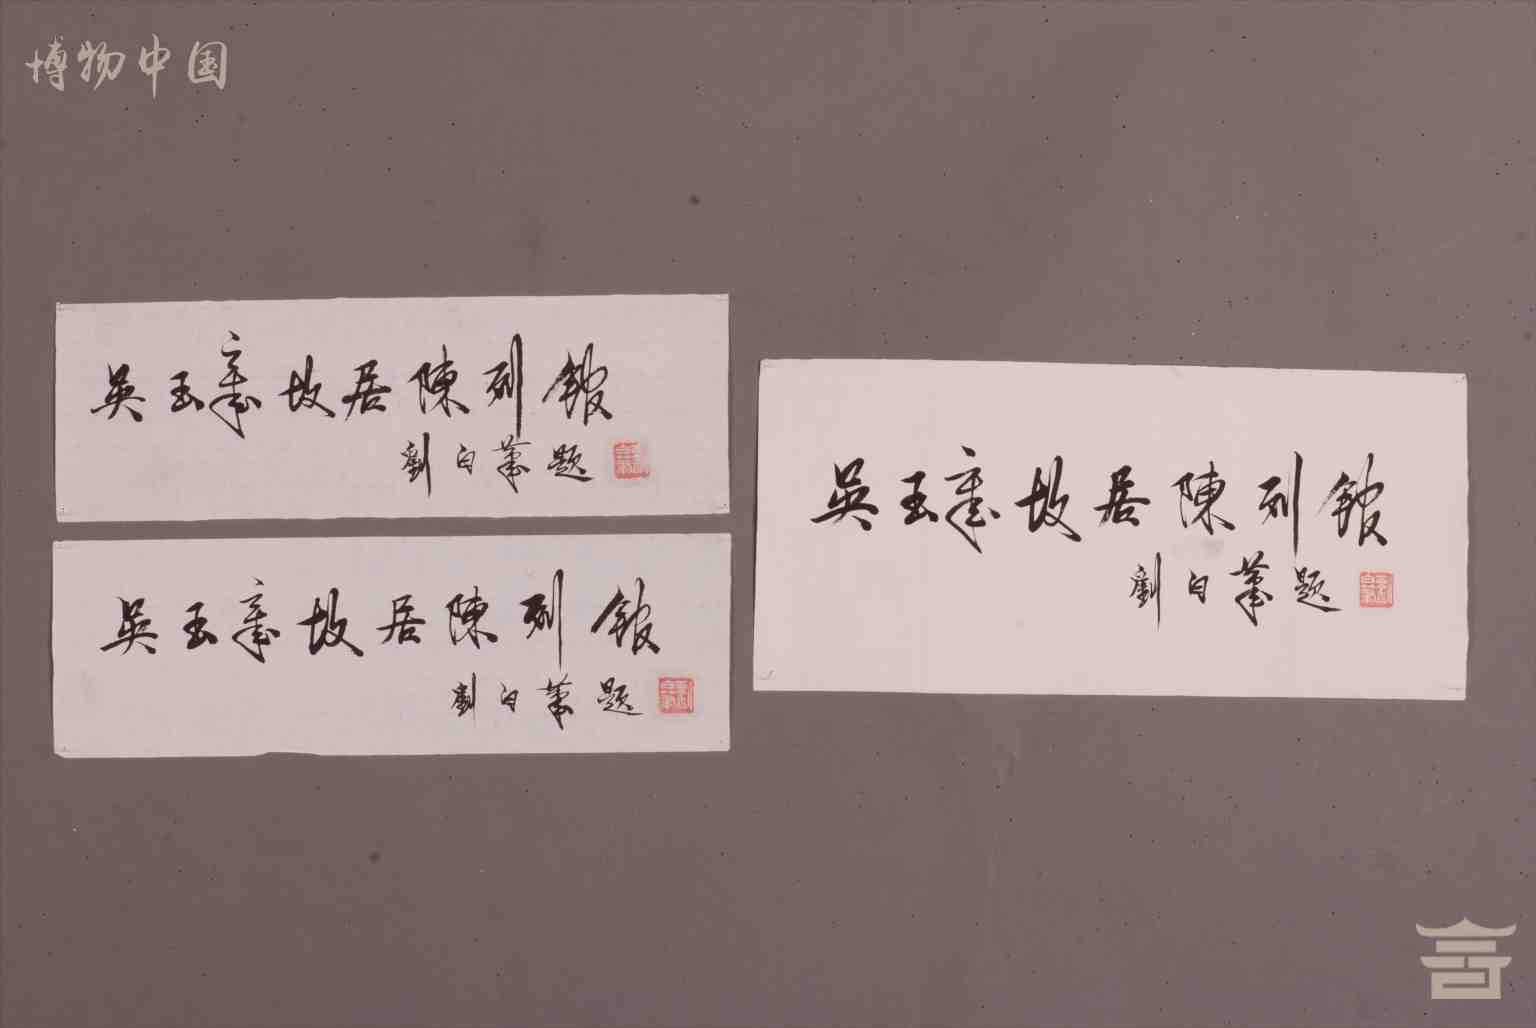 博物中国
吴玉章故居陳列館
劉白蕉題
吴玉章故居陳列館
劉白蕉題
吴玉章故居陳列館
劉白蕉題